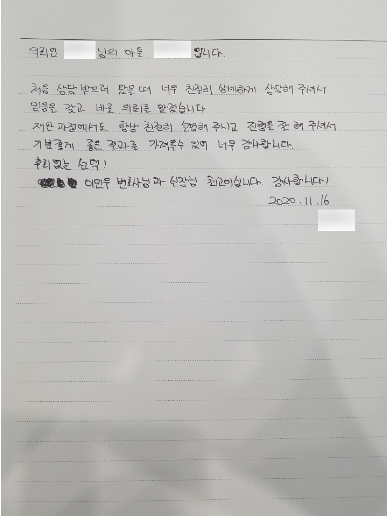 의뢰인 님의 아들 입니다.
처음 상담 받으러 왔을 때 너무 친절히 상세하게 상담해 주셔서
믿음을 갖고 바로 의뢰를 맡겼습니다
재판 과정에서도 항상 친절히 설명해 주시고 진행을 잘 해 주셔서
기분좋게 좋은 결과로 가져올수 있어 너무 감사합니다.
후회없는 선택!
이민우 변호사님과 실장님 최고이십니다. 감사합니다!
2020.11.16